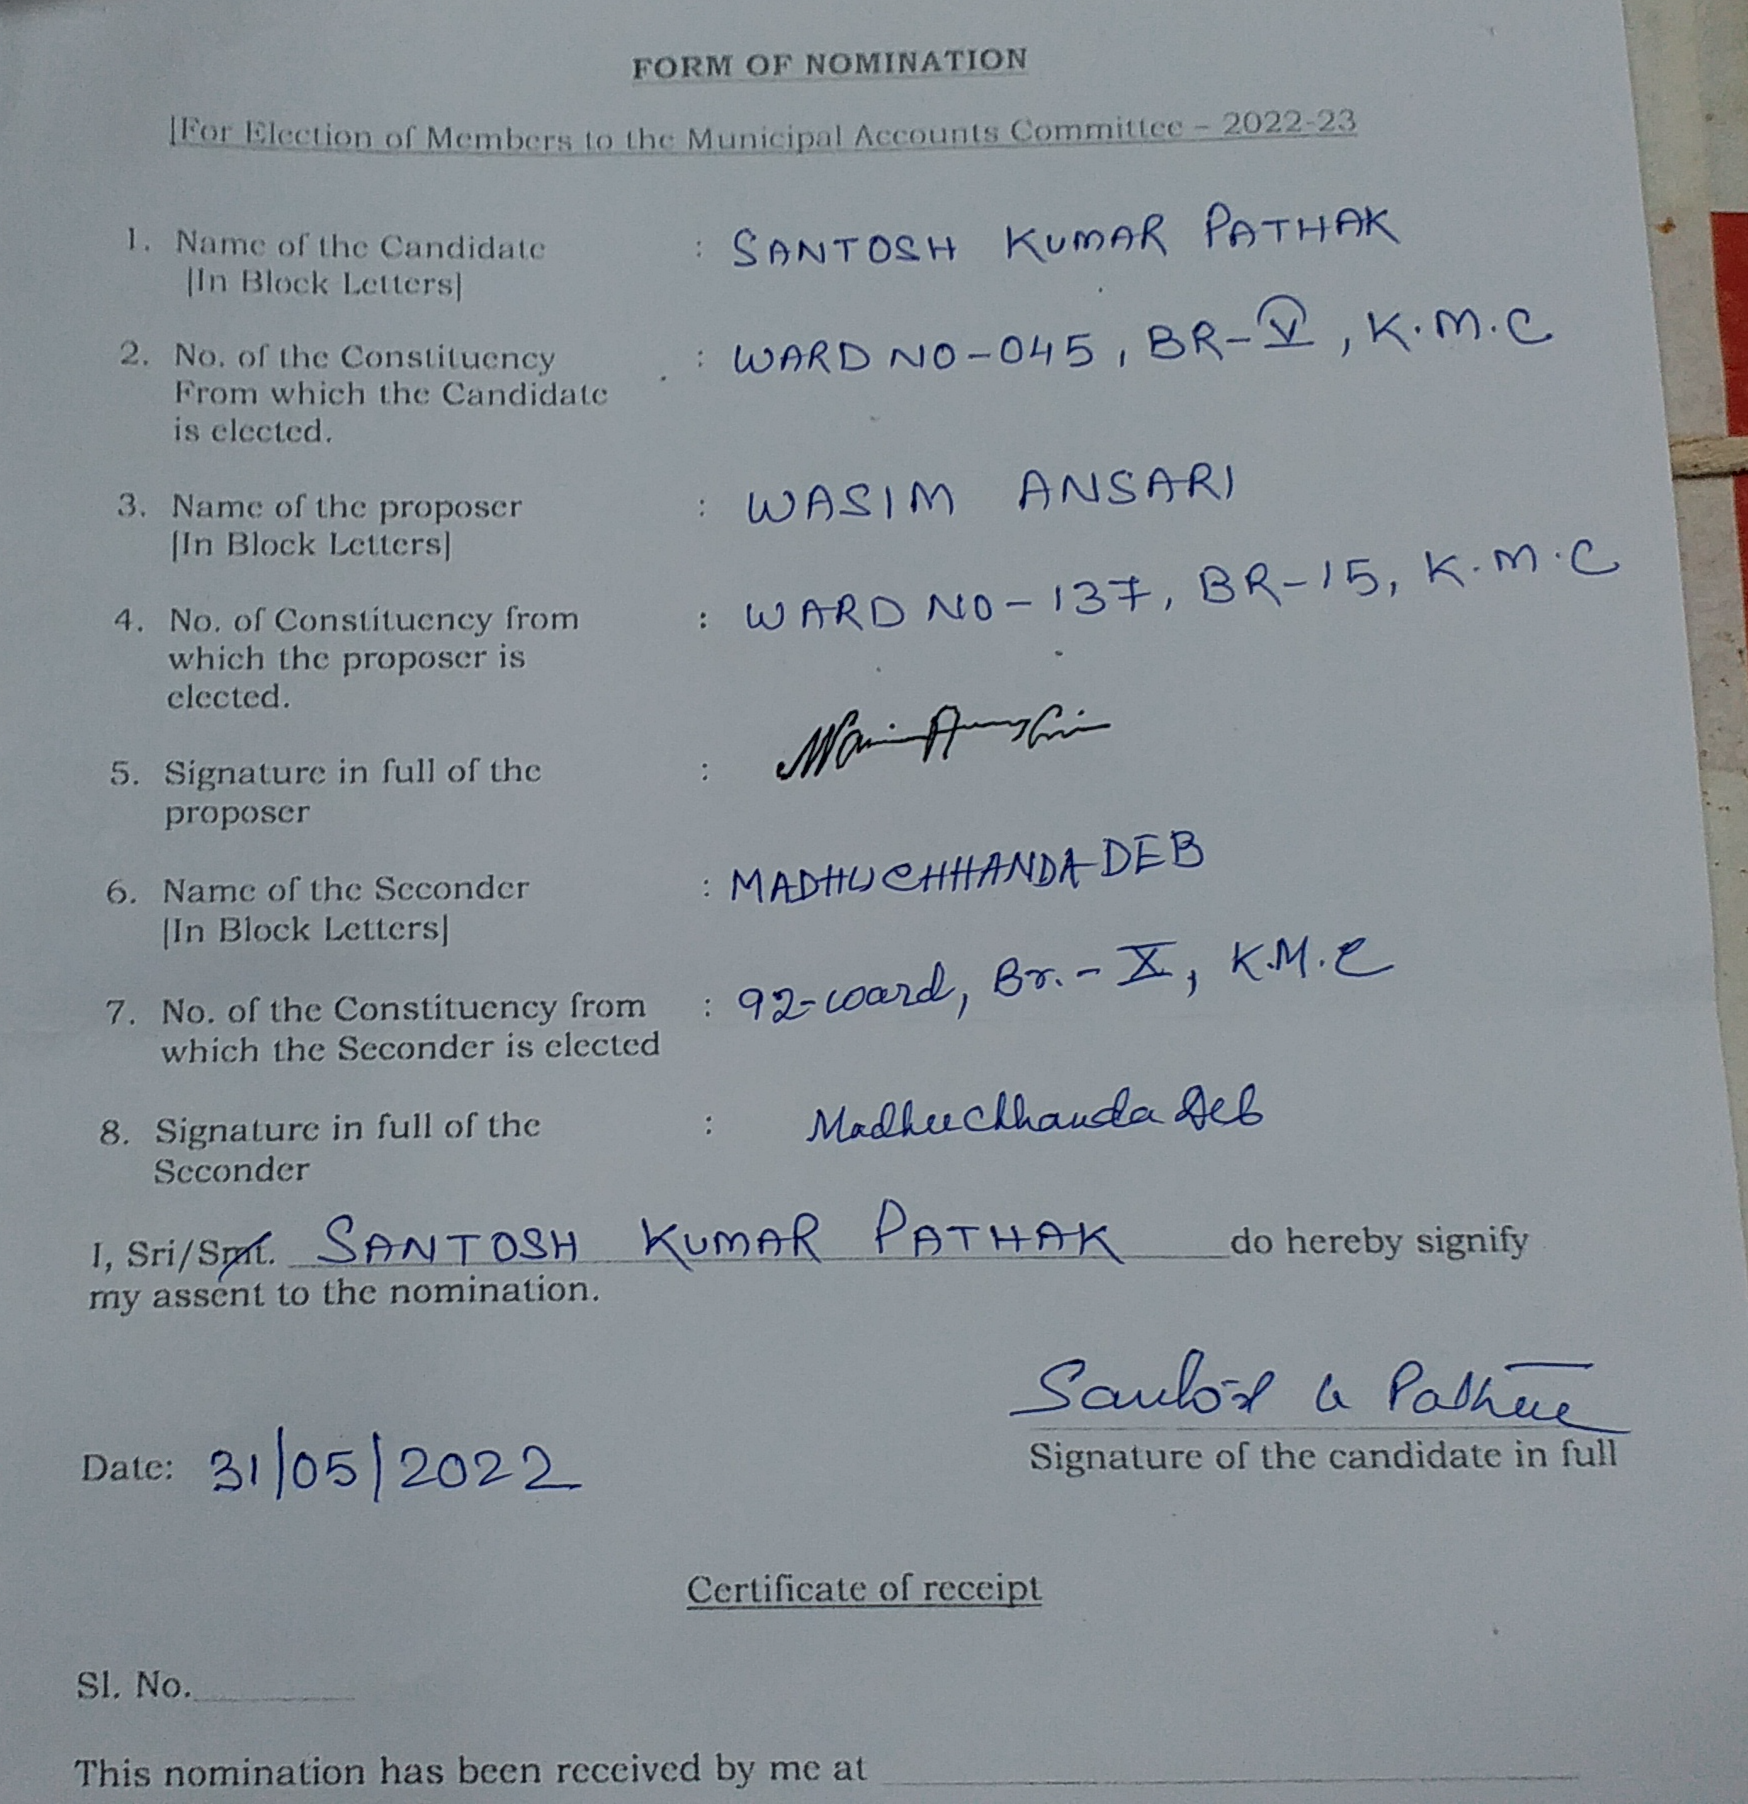 FORM OF NOMINATION
[For Election of Members to the Municipal Accounts Committee – 2022-23
1. Name of the Candidate : SANTOSH KUMAR PATHAK
[In Block Letters]
2. No. of the Constituency : WARD NO-045, BR-V, K.M.C
From which the Candidate
is elected.
3. Name of the proposer : WASIM ANSARI
[In Block Letters]
4. No. of Constituency from : WARD NO-137, BR-15, K.M.C
which the proposer is
elected.
5. Signature in full of the :
proposer
6. Name of the Seconder : MADHUCHHANDA DEB
[In Block Letters]
7. No. of the Constituency from : 92-ward, Br.-X, K.M.C
which the Seconder is elected
8. Signature in full of the : Madhuchhanda Deb
Seconder
I, Sri/Smt. SANTOSH KUMAR PATHAK do hereby signify
my assent to the nomination.
Date: 31/05/2022
Signature of the candidate in full
Certificate of receipt
Sl. No.
This nomination has been received by me at